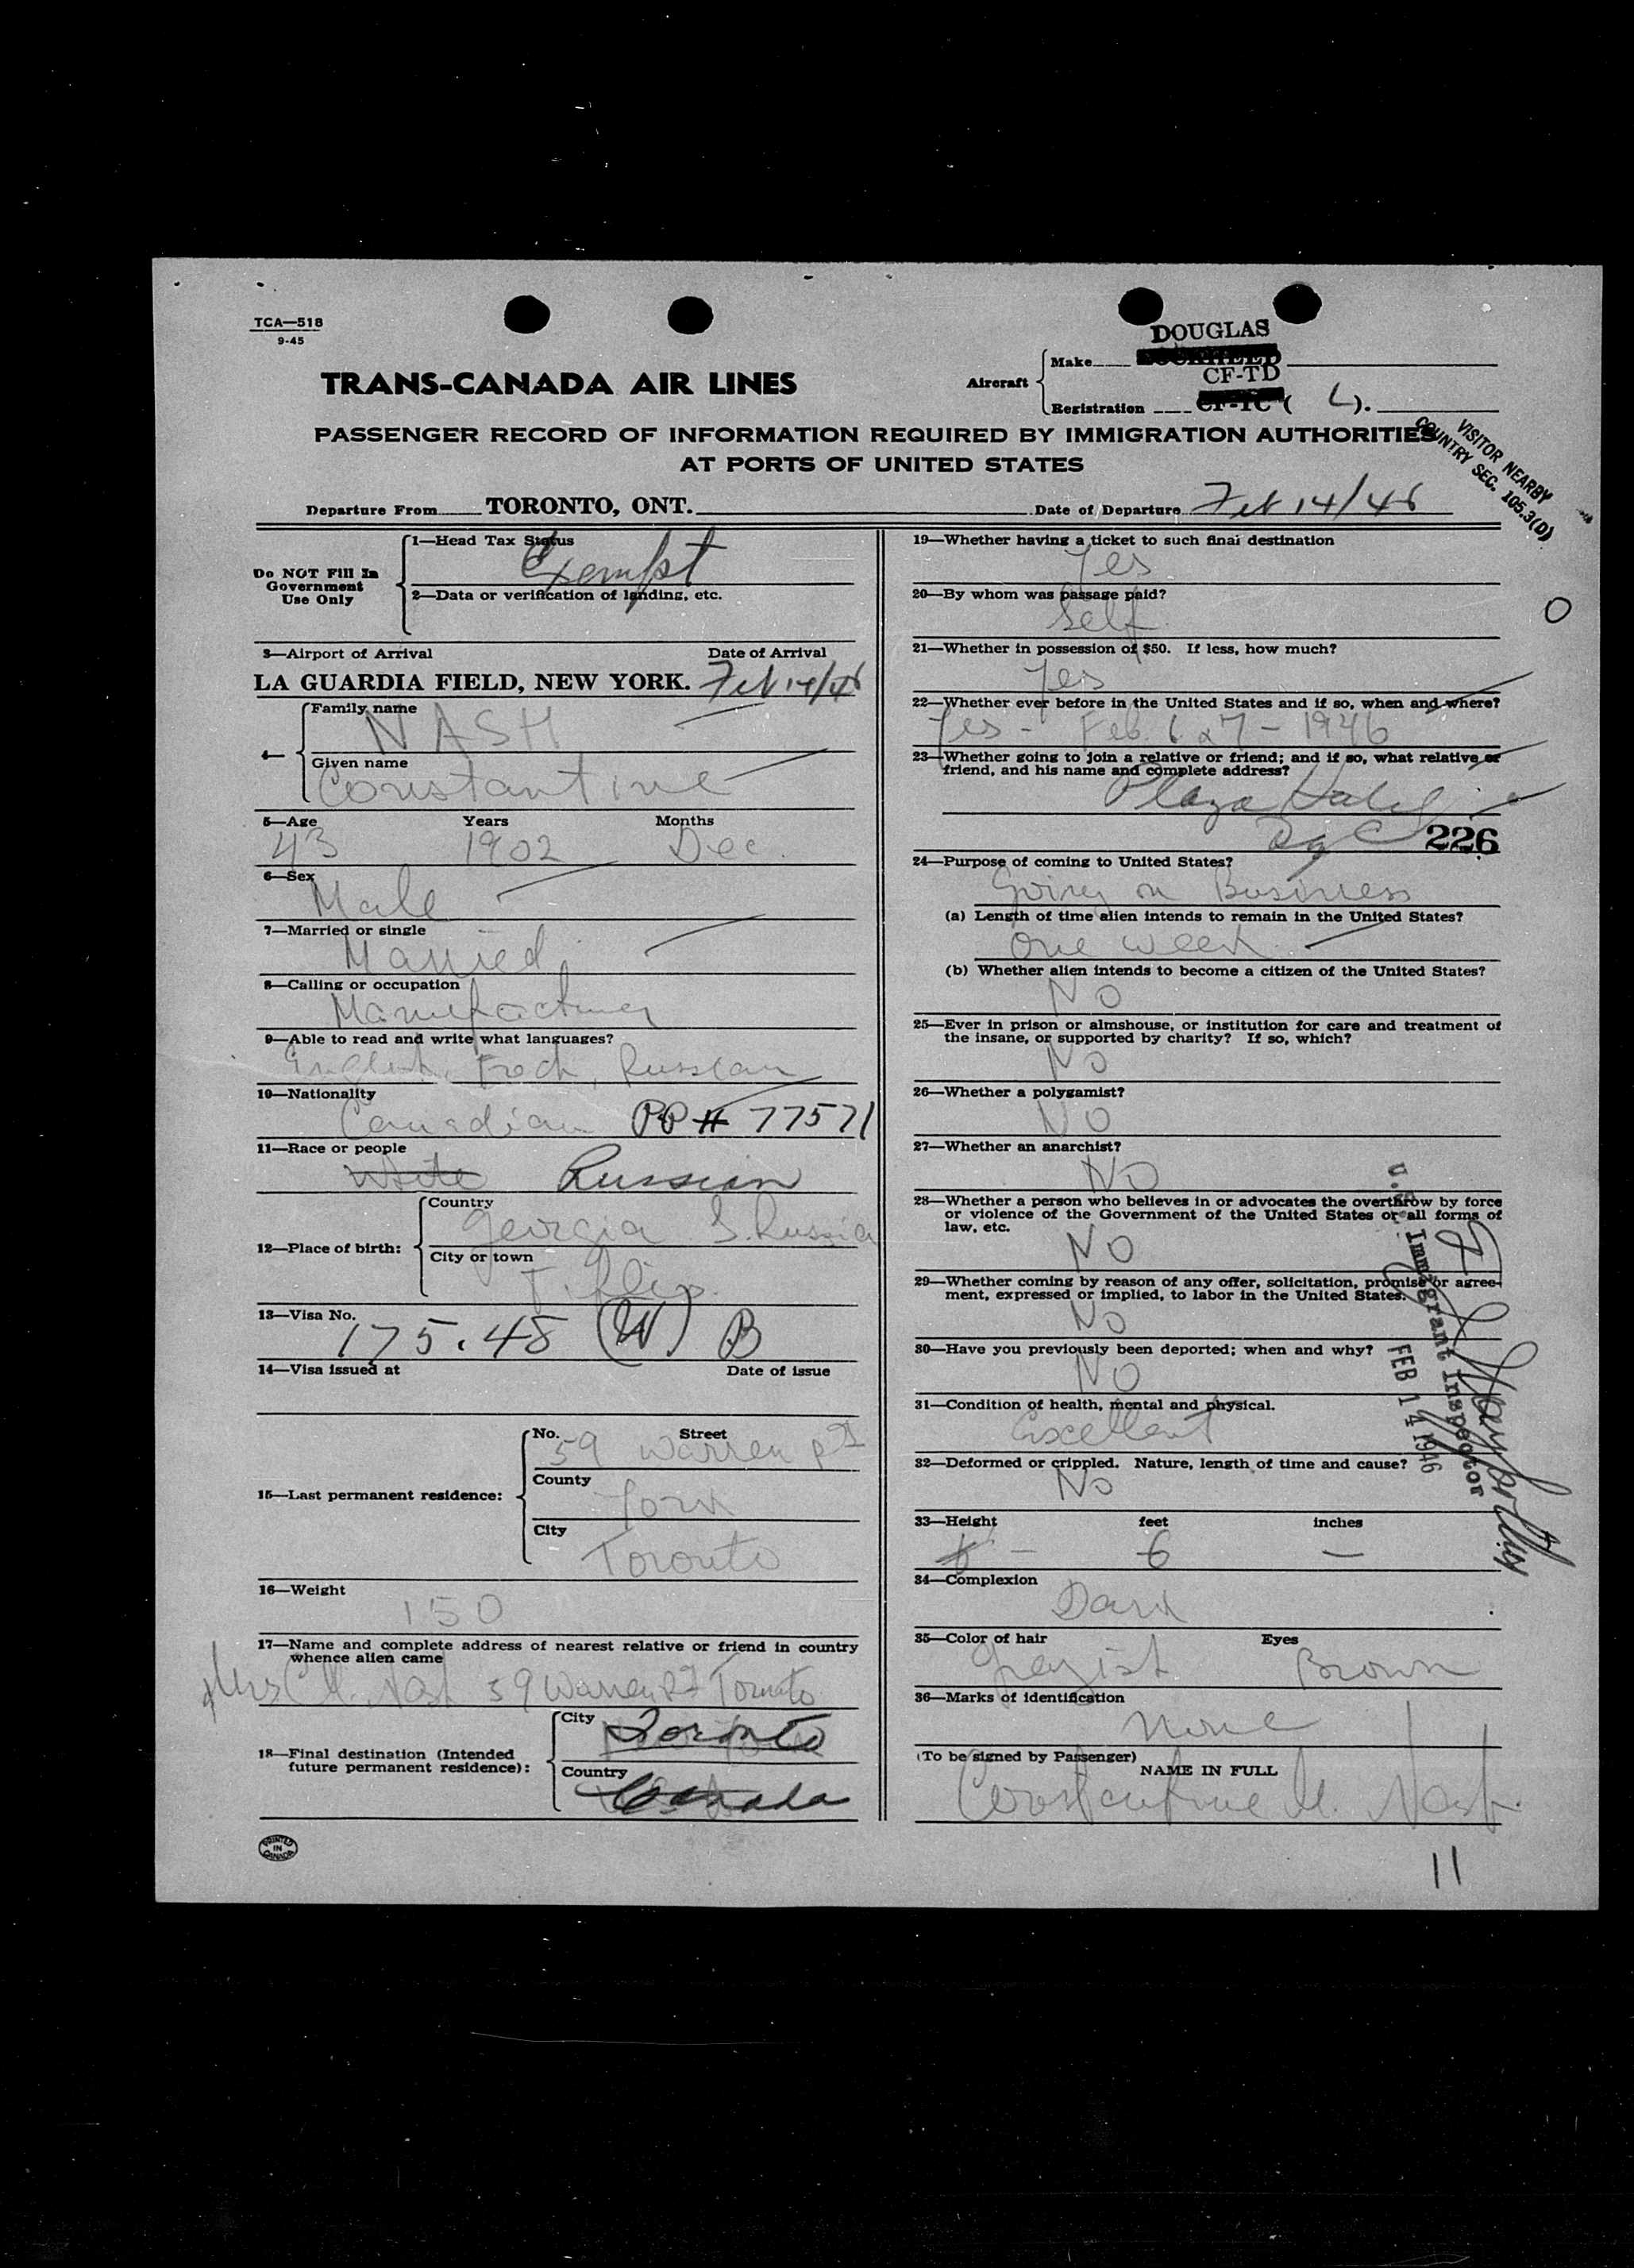 TCA—518
9-45
TRANS-CANADA AIR LINES
Aircraft
Make
DOUGLAS
CF-TD
Registration
CF-TC ( L ).
PASSENGER RECORD OF INFORMATION REQUIRED BY IMMIGRATION AUTHORITIES
AT PORTS OF UNITED STATES
VISITOR NEARBY
COUNTRY SEC. 105.3(D)
Departure From TORONTO, ONT. Date of Departure Feb 14/46
Do NOT Fill In
Government
Use Only
1—Head Tax Status
Exempt
2—Data or verification of landing, etc.
3—Airport of Arrival Date of Arrival
LA GUARDIA FIELD, NEW YORK. Feb 14/46
4—
Family name
NASH
Given name
Constantine
5—Age Years Months
43 1902 Dec.
6—Sex
Male
7—Married or single
Married
8—Calling or occupation
Manufacturer
9—Able to read and write what languages?
English, Frech, Russian
10—Nationality
Canadian PP # 77571
11—Race or people
White Russian
12—Place of birth:
Country
Georgia S. Russia
City or town
Tiflis.
13—Visa No.
175.45 (W) B
14—Visa issued at Date of issue
15—Last permanent residence:
No. Street
59 Warren Rd
County
York
City
Toronto
16—Weight
150
17—Name and complete address of nearest relative or friend in country
whence alien came
Mrs C. M. Nash 59 Warren Rd Toronto
18—Final destination (Intended
future permanent residence):
City
Toronto
Country
Canada
PRINTED
IN
CANADA
19—Whether having a ticket to such final destination
Yes
20—By whom was passage paid?
Self
0
21—Whether in possession of $50. If less, how much?
Yes
22—Whether ever before in the United States and if so, when and where?
Yes - Feb. 6 & 7 - 1946
23—Whether going to join a relative or friend; and if so, what relative or
friend, and his name and complete address?
Plaza Hotel
226
24—Purpose of coming to United States?
Going on Business
(a) Length of time alien intends to remain in the United States?
One week
(b) Whether alien intends to become a citizen of the United States?
No
25—Ever in prison or almshouse, or institution for care and treatment of
the insane, or supported by charity? If so, which?
No
26—Whether a polygamist?
No
27—Whether an anarchist?
No
28—Whether a person who believes in or advocates the overthrow by force
or violence of the Government of the United States or all forms of
law, etc.
No
29—Whether coming by reason of any offer, solicitation, promise or agree-
ment, expressed or implied, to labor in the United States.
No
30—Have you previously been deported; when and why?
No
31—Condition of health, mental and physical.
Excellent
32—Deformed or crippled. Nature, length of time and cause?
No
U.S. Immigrant Inspector
FEB 14 1946
33—Height feet inches
6 — 6 —
34—Complexion
Dark
35—Color of hair Eyes
Grayish Brown
36—Marks of identification
None
(To be signed by Passenger)
NAME IN FULL
Constantine M. Nash.
11